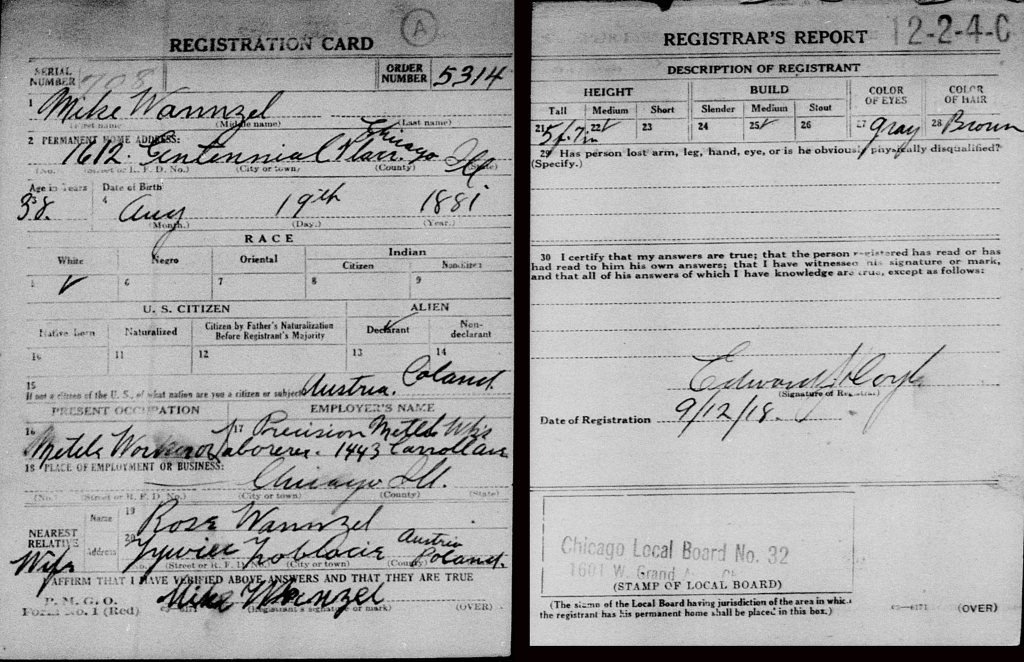 REGISTRATION CARD
A
SERIAL NUMBER 708
ORDER NUMBER 5314
1 Mike Wannzel
(First name) (Middle name) (Last name)
2 PERMANENT HOME ADDRESS:
1612. Centennial Chicago Ill
(No.) (Street or R. F. D. No.) (City or town) (County) (State)
Age in Years Date of Birth
38. 4 Aug 19th 1881
(Month.) (Day.) (Year.)
RACE
White Negro Oriental Indian
Citizen Noncitizen
5 ✓ 6 7 8 9
U. S. CITIZEN ALIEN
Native born Naturalized Citizen by Father's Naturalization Before Registrant's Majority Declarant ✓ Non-declarant
10 11 12 13 14
15 If not a citizen of the U. S., of what nation are you a citizen or subject? Austria. Poland.
PRESENT OCCUPATION EMPLOYER'S NAME
16 Metels 17 Precision Metels Wks
Laborer 1443 Carroll ave
18 PLACE OF EMPLOYMENT OR BUSINESS:
Chicago Ill.
(No.) (Street or R. F. D. No.) (City or town) (County) (State)
NEAREST RELATIVE Name 19 Rose Wannzel
Wife Address 20 Zywiec Zoblocie Austria Poland.
(Street or R. F. D. No.) (City or town) (County)
I AFFIRM THAT I HAVE VERIFIED ABOVE ANSWERS AND THAT THEY ARE TRUE
P. M. G. O.
Form No. 1 (Red) Mike Wannzel
(Registrant's signature or mark) (OVER)
REGISTRAR'S REPORT 12-2-4-C
DESCRIPTION OF REGISTRANT
HEIGHT BUILD COLOR OF EYES COLOR OF HAIR
Tall Medium Short Slender Medium Stout
21 5ft. 7in 22 ✓ 23 24 25 ✓ 26 27 gray 28 Brown
29 Has person lost arm, leg, hand, eye, or is he obviously physically disqualified?
(Specify.)
30 I certify that my answers are true; that the person registered has read or has
had read to him his own answers; that I have witnessed his signature or mark,
and that all of his answers of which I have knowledge are true, except as follows:
Edward J Doyle
(Signature of Registrar)
Date of Registration 9/12/18.
Chicago Local Board No. 32
1601 W. Grand
(STAMP OF LOCAL BOARD)
(The stamp of the Local Board having jurisdiction of the area in which
the registrant has his permanent home shall be placed in this box.)
(OVER)